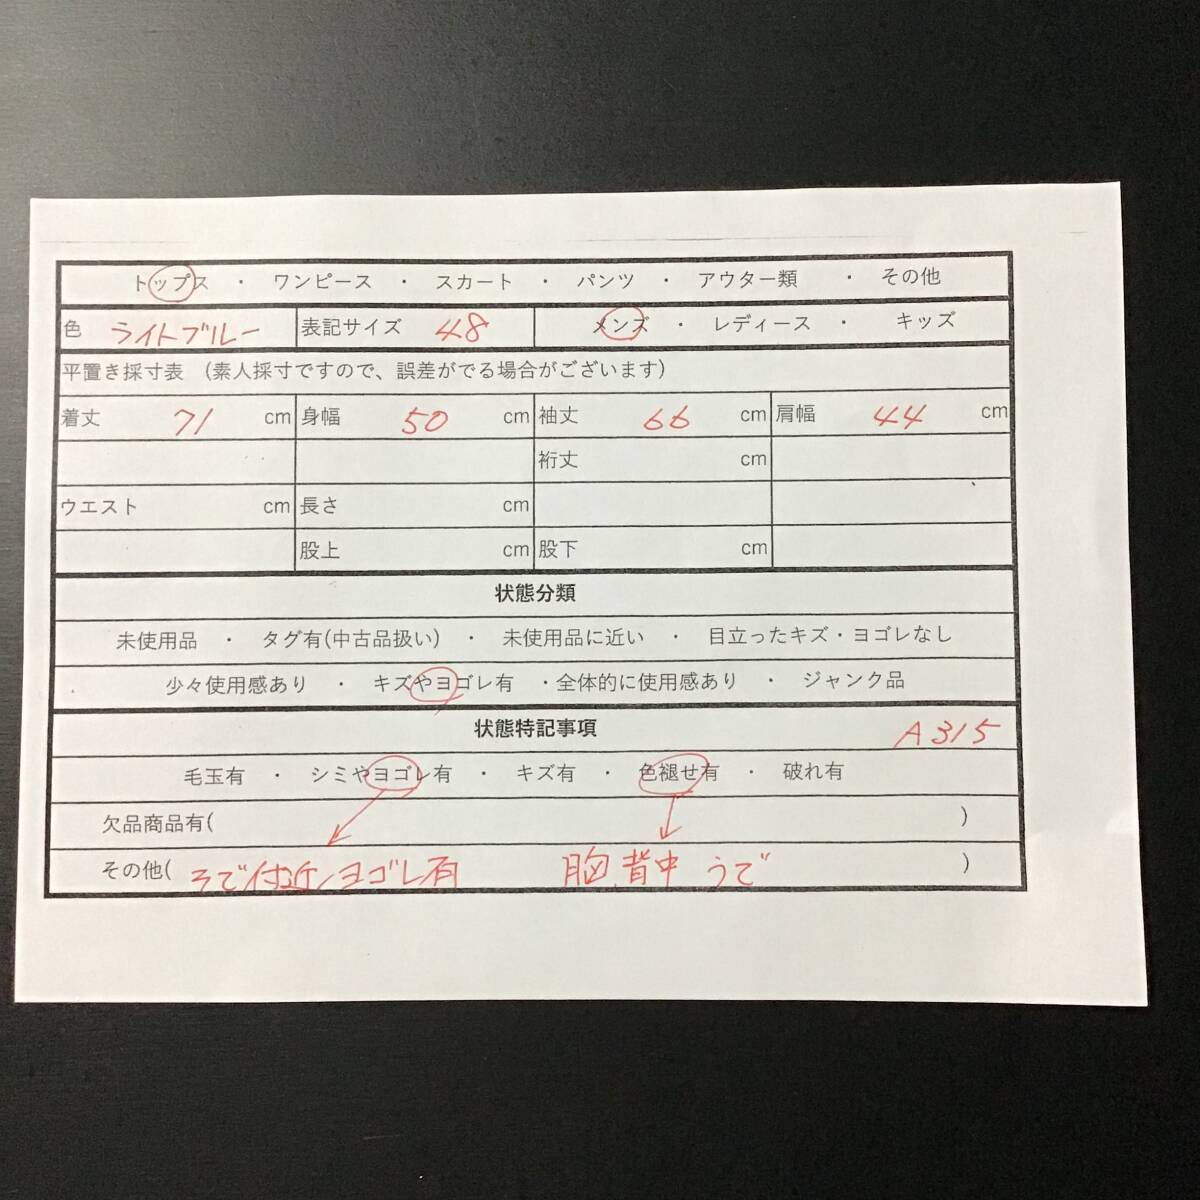 トップス ・ ワンピース ・ スカート ・ パンツ ・ アウター類 ・ その他
色 ライトブルー 表記サイズ 48 メンズ ・ レディース ・ キッズ
平置き採寸表 (素人採寸ですので、誤差がでる場合がございます)
着丈 71 cm 身幅 50 cm 袖丈 66 cm 肩幅 44 cm
裄丈 cm
ウエスト cm 長さ cm
股上 cm 股下 cm
状態分類
未使用品 ・ タグ有(中古品扱い) ・ 未使用品に近い ・ 目立ったキズ・ヨゴレなし
少々使用感あり ・ キズやヨゴレ有 ・全体的に使用感あり ・ ジャンク品
状態特記事項 A315
毛玉有 ・ シミやヨゴレ有 ・ キズ有 ・ 色褪せ有 ・ 破れ有
欠品商品有( )
その他( そで付近ヨゴレ有 胸、背中 うで )